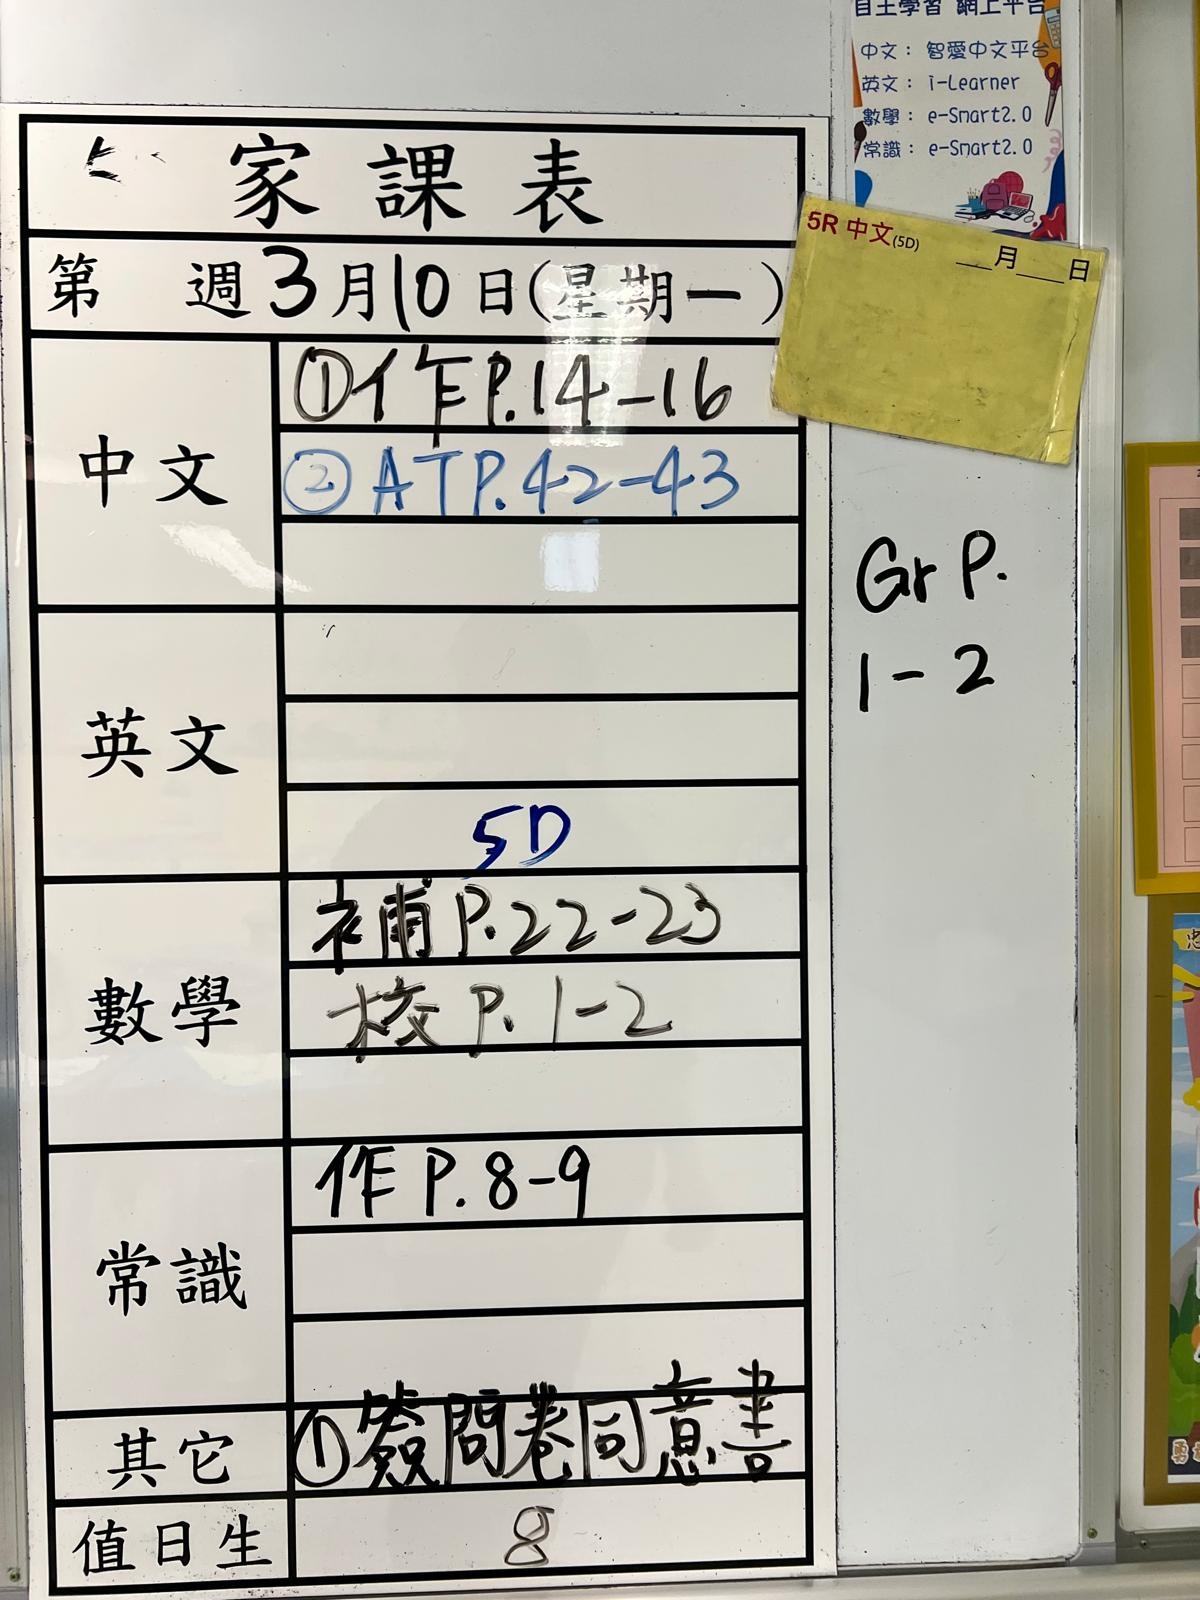 自主學習 網上平台
中文： 智愛中文平台
英文： i-Learner
數學： e-Smart2.0
常識： e-Smart2.0
5R 中文(5D)
___月___日
家課表
第 週3月10日(星期一)
中文
①作P.14-16
②ATP.42-43
英文
5D
數學
補P.22-23
校P.1-2
常識
作P.8-9
其它
①簽問卷同意書
值日生
8
Gr P.
1-2